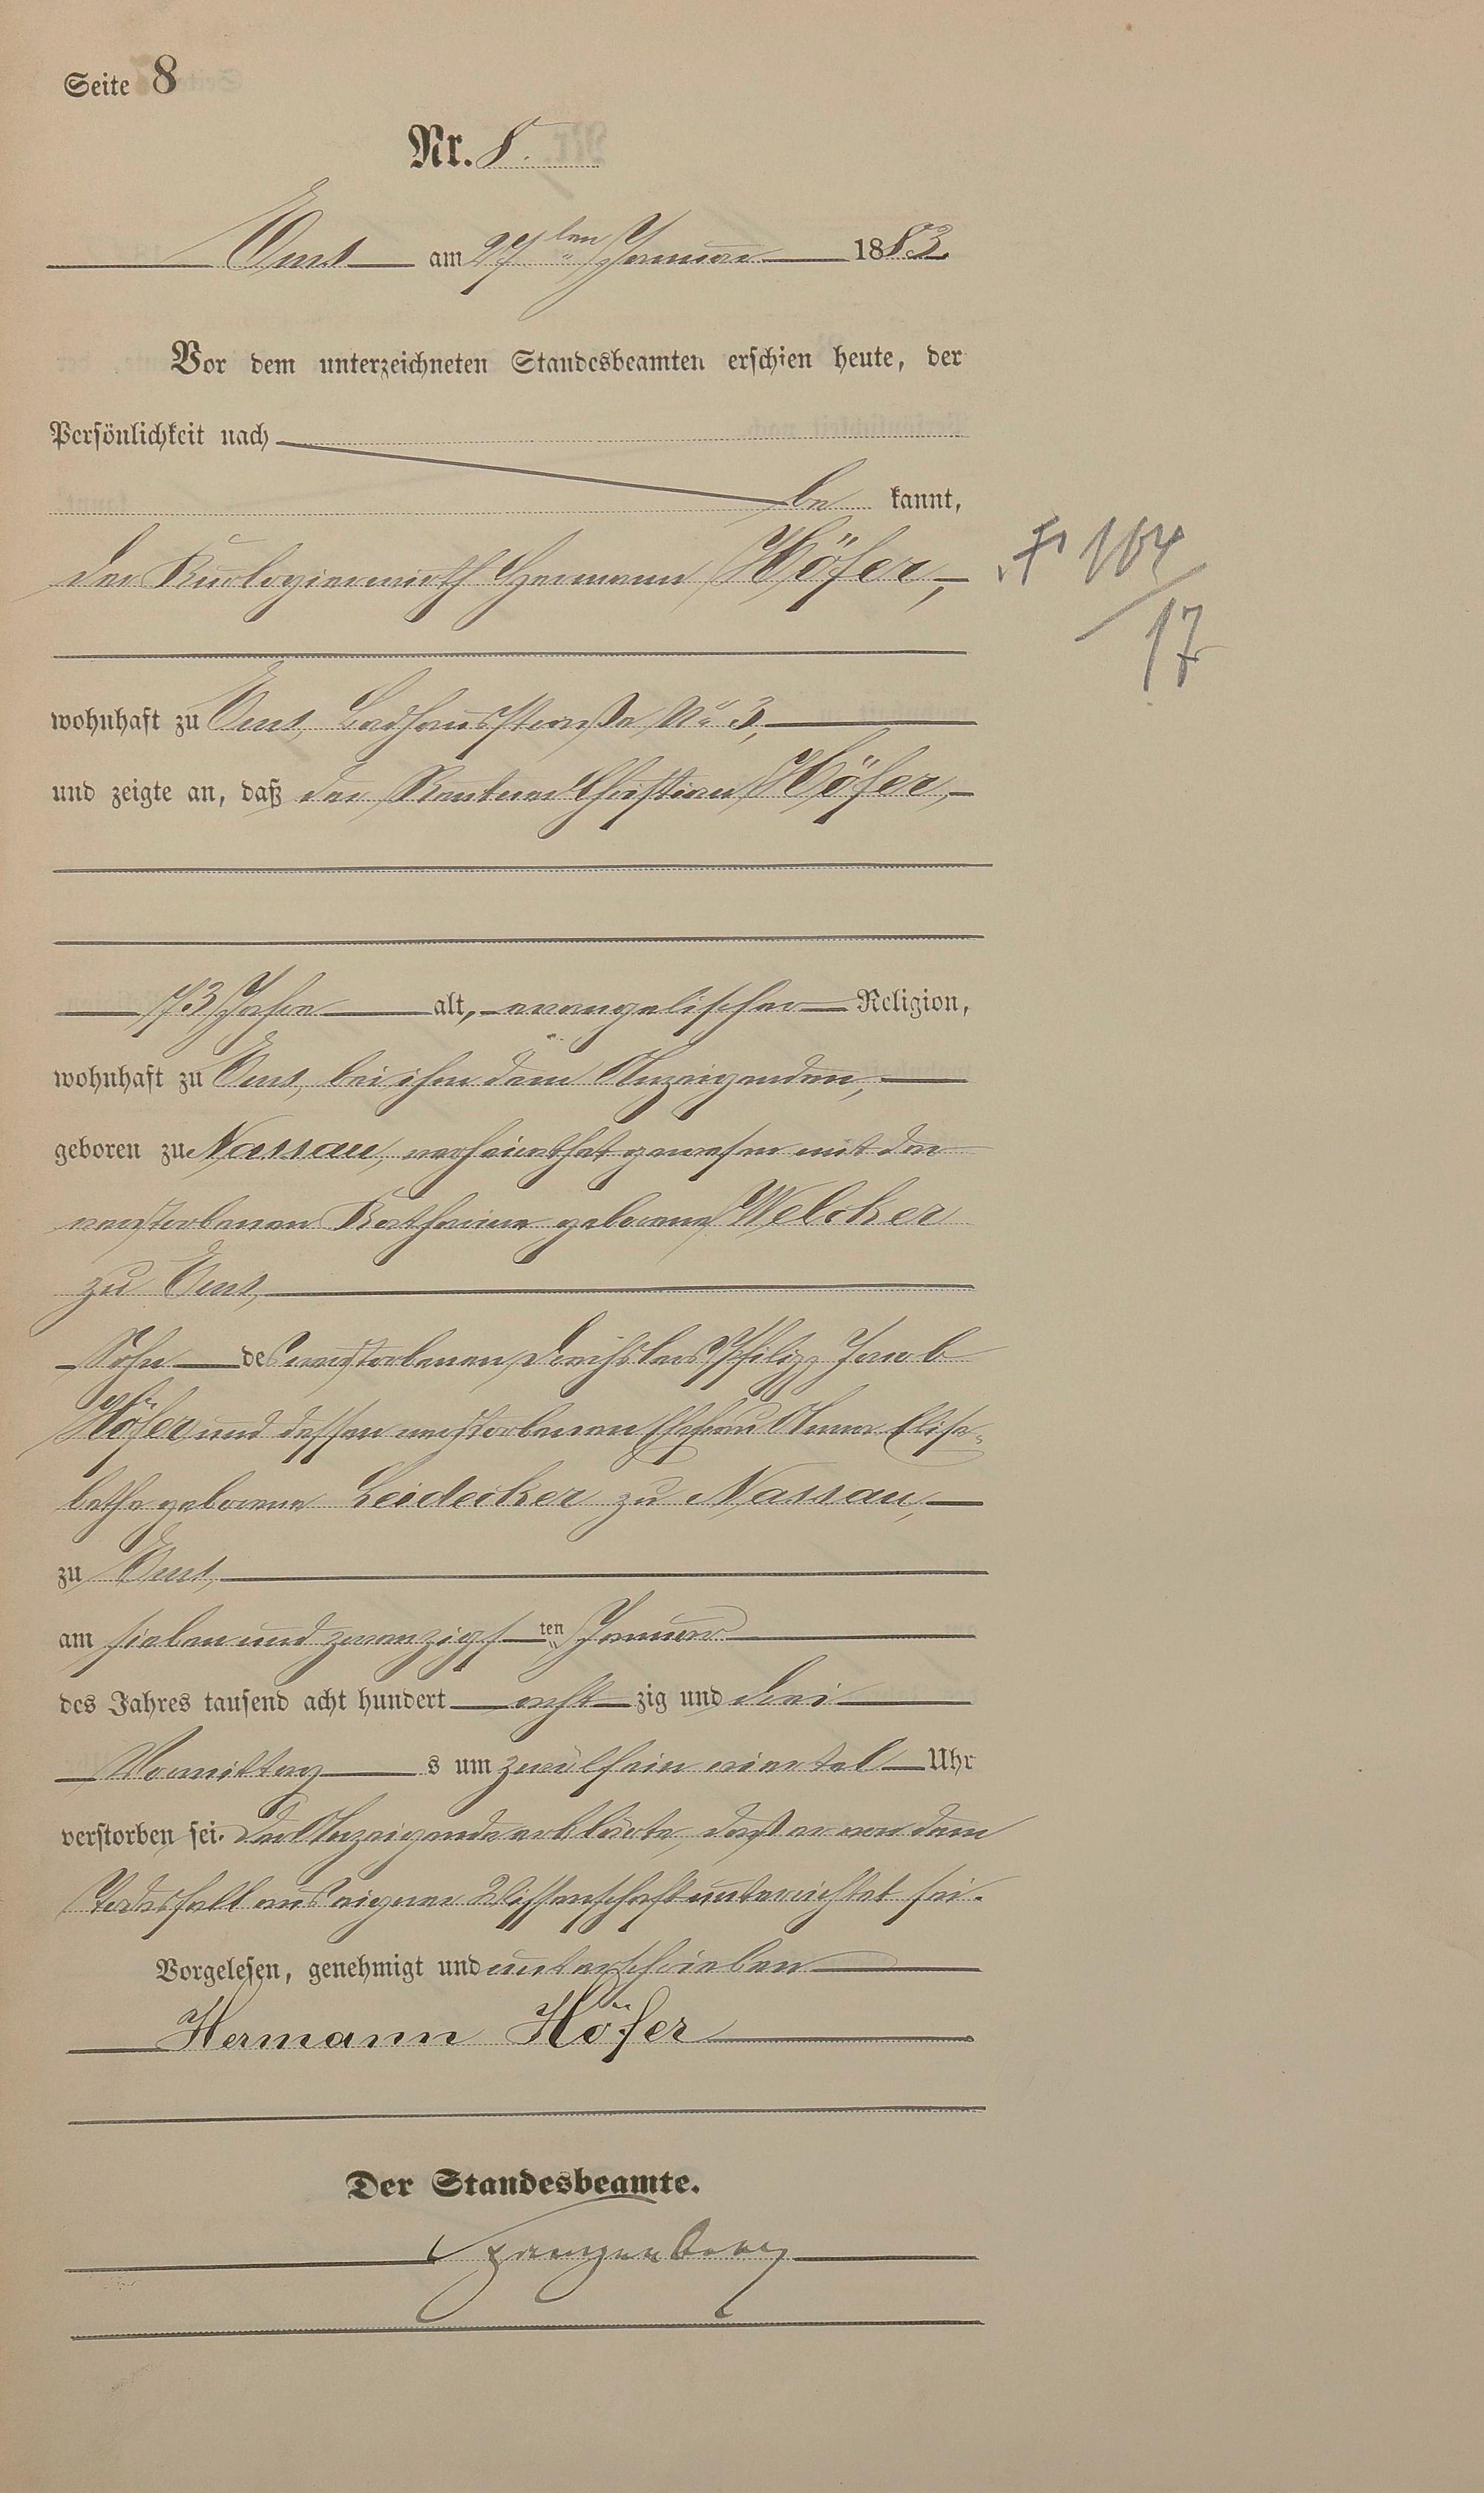 Seite 8
Nr. 8.
Ems am 27ten Januar 1883.
Vor dem unterzeichneten Standesbeamten erschien heute, der
Persönlichkeit nach
be kannt,
der Kurlogierwirth Hermann Höfer,
164
17
wohnhaft zu Ems, Badhausstraße No 3,
und zeigte an, daß der Rentner Christian Höfer,
73 Jahre alt, evangelischer Religion,
wohnhaft zu Ems, bei ihm dem Anzeigenden,
geboren zu Nassau, verheirathet gewesen mit der
verstorbenen Katharina geborene Welcker
zu Ems,
Sohn des verstorbenen Drechslers Philipp Jacob
Höfer und dessen verstorbenen Ehefrau Anna Elisa-
betha geborene Leidecker zu Nassau,
zu Ems,
am sieben und zwanzigsten Januar
des Jahres tausend acht hundert acht zig und drei
Vormittags um zwölf ein viertel Uhr
verstorben sei. Der Anzeigende erklärte, daß er von dem
Todesfall aus eigener Wissenschaft unterrichtet sei.
Vorgelesen, genehmigt und unterschrieben
Hermann Höfer
Der Standesbeamte.